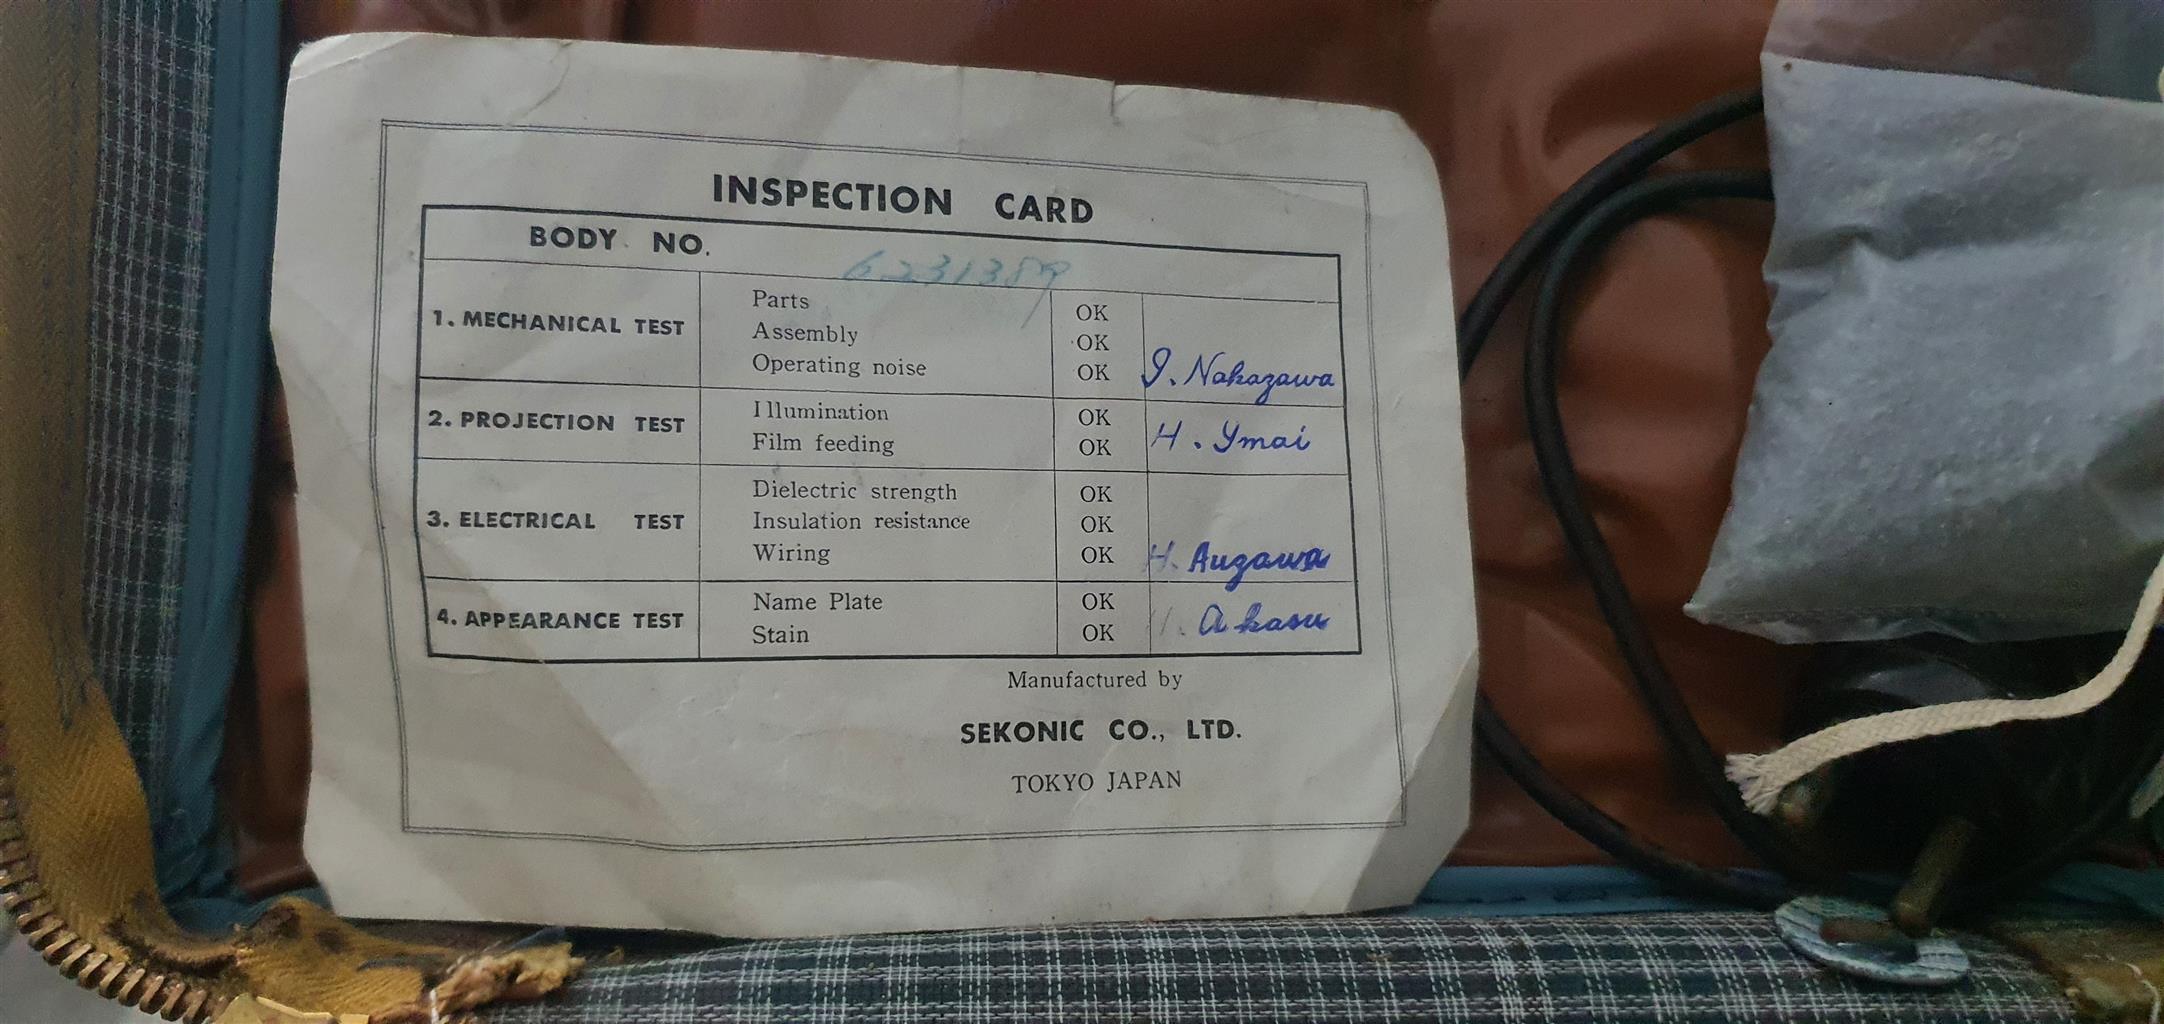 INSPECTION CARD
BODY NO. 6231389
1. MECHANICAL TEST
Parts OK
Assembly OK
Operating noise OK
I. Nakazawa
2. PROJECTION TEST
Illumination OK
Film feeding OK
H. Ymai
3. ELECTRICAL TEST
Dielectric strength OK
Insulation resistance OK
Wiring OK
H. Auzawa
4. APPEARANCE TEST
Name Plate OK
Stain OK
Akasu
Manufactured by
SEKONIC CO., LTD.
TOKYO JAPAN